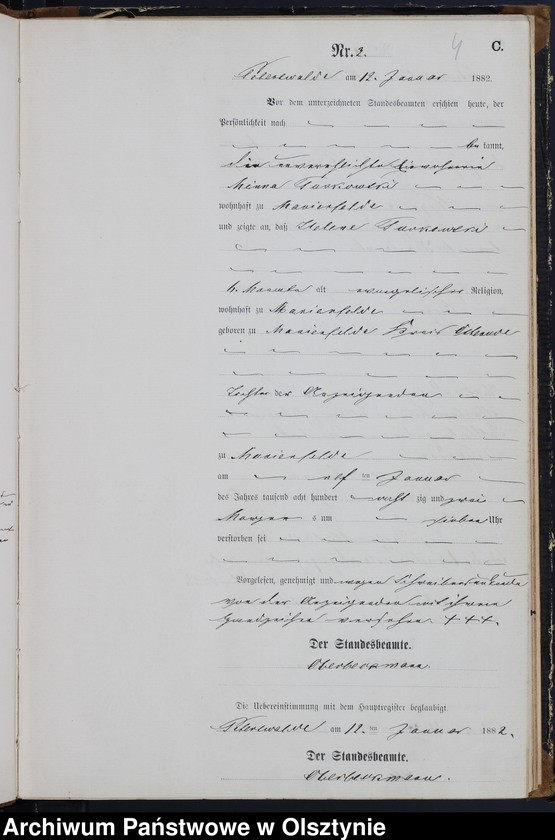 Nr. 2.
4
C.
am 12. Januar 1882.
Vor dem unterzeichneten Standesbeamten erschien heute, der
Persönlichkeit nach
bekannt,
die unverehelichte
Minna Turkowski
wohnhaft zu Marienfelde
und zeigte an, daß Helene Turkowski
Monate alt evangelischer Religion,
wohnhaft zu Marienfelde
geboren zu Marienfelde Kreis Osterode
Tochter der Anzeigenden
zu Marienfelde
am elf ten Januar
des Jahres tausend acht hundert acht zig und zwei
Morgens um sieben Uhr
verstorben sei
Vorgelesen, genehmigt und wegen Schreibensunkunde
von der Anzeigenden mit ihrem
Handzeichen versehen. +++.
Der Standesbeamte.
Die Uebereinstimmung mit dem Hauptregister beglaubigt.
am 12. ten Januar 1882.
Der Standesbeamte.
Archiwum Państwowe w Olsztynie